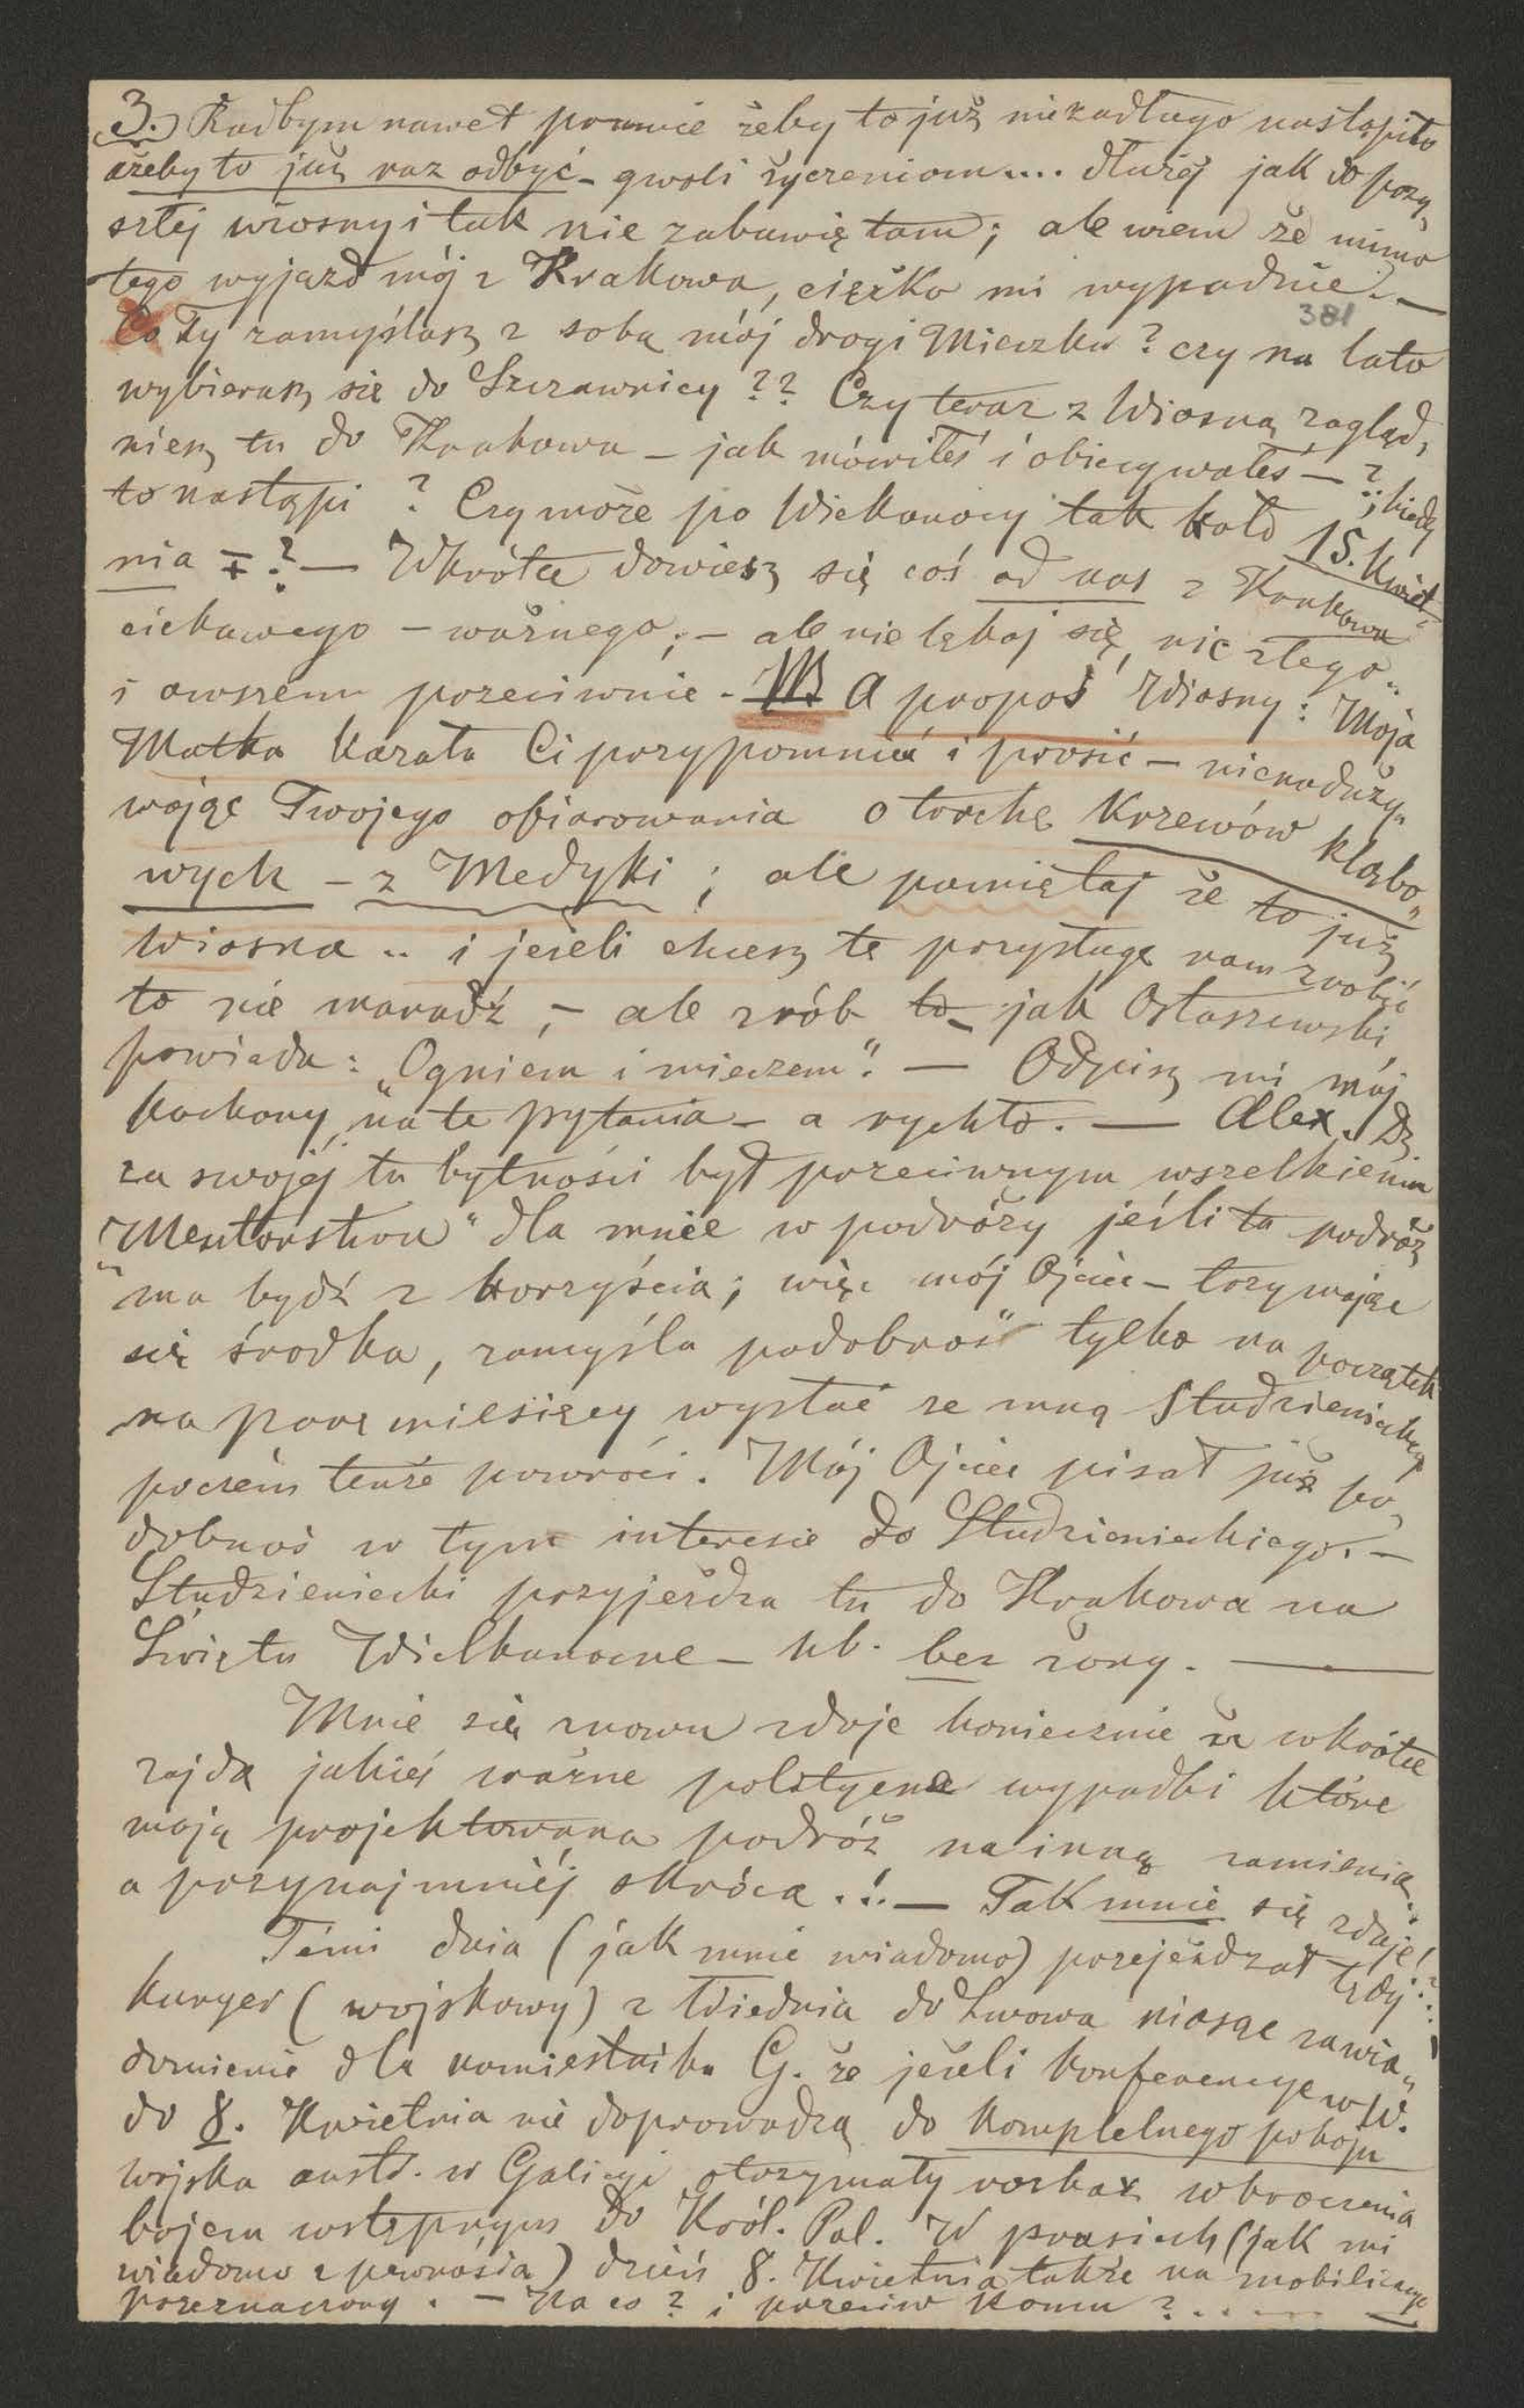 3.) Radbym nawet prawie żeby to już niezadługo nastąpiło
ażeby to już raz odbyć – gwoli życzeniom.... dłużéj jak do przy„
szłéj wiosny i tak nie zabawię tam; ale wiem że mimo
tego wyjazd mój z Krakowa, ciężko mi wypadnie. –
381
Co Ty zamyślasz z sobą mój drogi Mieczku? czy na lato
wybierasz się do Szczawnicy?? Czy teraz z Wiosną zagląd„
niesz tu do Krakowa – jak mówiłeś i obiecywałeś – ?; kiedy
to nastąpi? Czy może po Wielkanocy tak koło 15. Kwiet„
nia ∓? – Wkrótce dowiesz się coś od nas z Krakowa
ciekawego – ważnego; – ale nie lękaj się, nic złego..
i owszem przeciwnie. – NB A propos Wiosny: Moja
Matka kazała Ci przypomnieć i prosić – nienaduży„
wając Twojego ofiarowania o trochę Krzewów kląbo„
wych – z Medyki; ale pamiętaj że to już
Wiosna .. i jeżeli chcesz tę przysługę nam zrobić
to nie marudź, – ale zrób to – jak Ostaszewski
powiada: „Ogniem i mieczem“. – Odpisz mi mój
kochany, na te pytania – a rychło. — Alex. Dz
za swojéj tu bytności był przeciwnym wszelkiemu
„Mentorstwu“ dla mnie w podróży jeśli ta podróż
ma bydź z korzyścią; więc mój Ojciec – trzymając
się środka, zamyśla podobnoś tylko na początek
na parę miesięcy wysłać ze mną Studzienieckiego
poczém tenże powróci. Mój Ojciec pisał już po„
dobnoś w tym interesie do Studzienieckiego. –
Studzieniecki przyjeżdża tu do Krakowa na
Święta Wielkanocne – nb. bez żony. —
Mnie się znowu zdaje koniecznie że wkrótce
zajdą jakieś ważne polityczne wypadki które
moją projektowaną podróż na inną zamienią..
a przynajmniéj skrócą. !. – Tak mnie się zdaje!
Temi dnia (jak mnie wiadomo) przejeżdzał tędy
kuryer (wojskowy) z Wiednia do Lwowa niosąc zawia„
domienie dla namiestnika G. że jeżeli konferencye w W.
do 8. Kwietnia nie doprowadzą do kompletnego pokoju
wojska austr. w Galicyi otrzymały rozkaz wkroczenia
bojem wstępnym do Król. Pol. W prusiech (jak mi
wiadomo z pewnością) dzień 8. Kwietnia także na mobilizacye
przeznaczony. – Na co? i przeciw komu?......